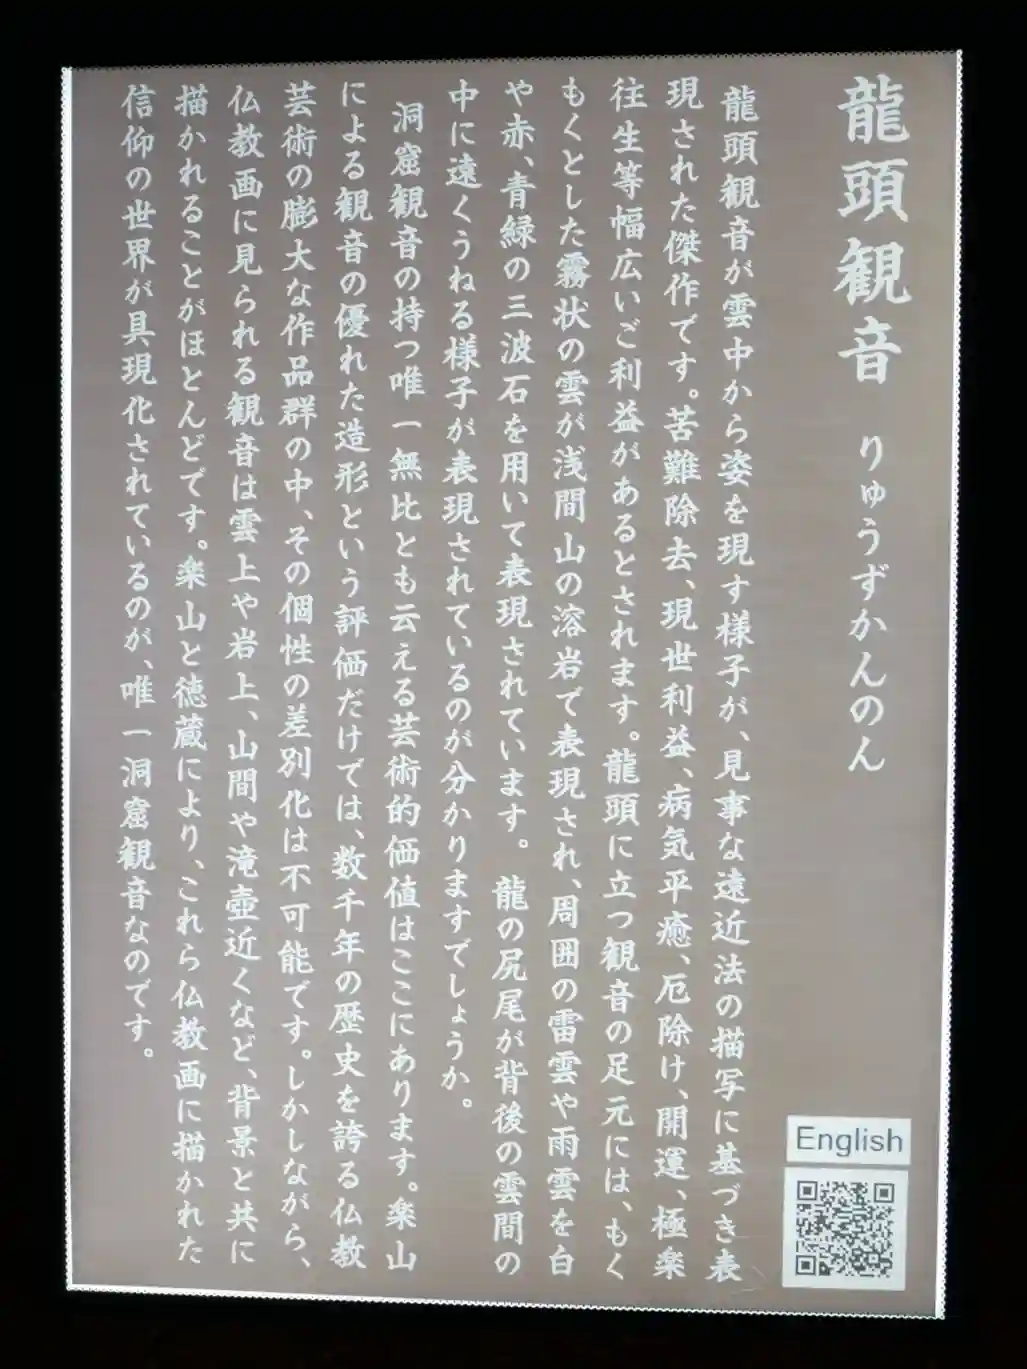 龍頭観音 りゅうずかんのん
龍頭観音が雲中から姿を現す様子が、見事な遠近法の描写に基づき表
現された傑作です。苦難除去、現世利益、病気平癒、厄除け、開運、極楽
往生等幅広いご利益があるとされます。龍頭に立つ観音の足元には、もく
もくとした霧状の雲が浅間山の溶岩で表現され、周囲の雷雲や雨雲を白
や赤、青緑の三波石を用いて表現されています。 龍の尻尾が背後の雲間の
中に遠くうねる様子が表現されているのが分かりますでしょうか。
洞窟観音の持つ唯一無比とも云える芸術的価値はここにあります。楽山
による観音の優れた造形という評価だけでは、数千年の歴史を誇る仏教
芸術の膨大な作品群の中、その個性の差別化は不可能です。しかしながら、
仏教画に見られる観音は雲上や岩上、山間や滝壺近くなど、背景と共に
描かれることがほとんどです。楽山と徳蔵により、これら仏教画に描かれた
信仰の世界が具現化されているのが、唯一洞窟観音なのです。
English